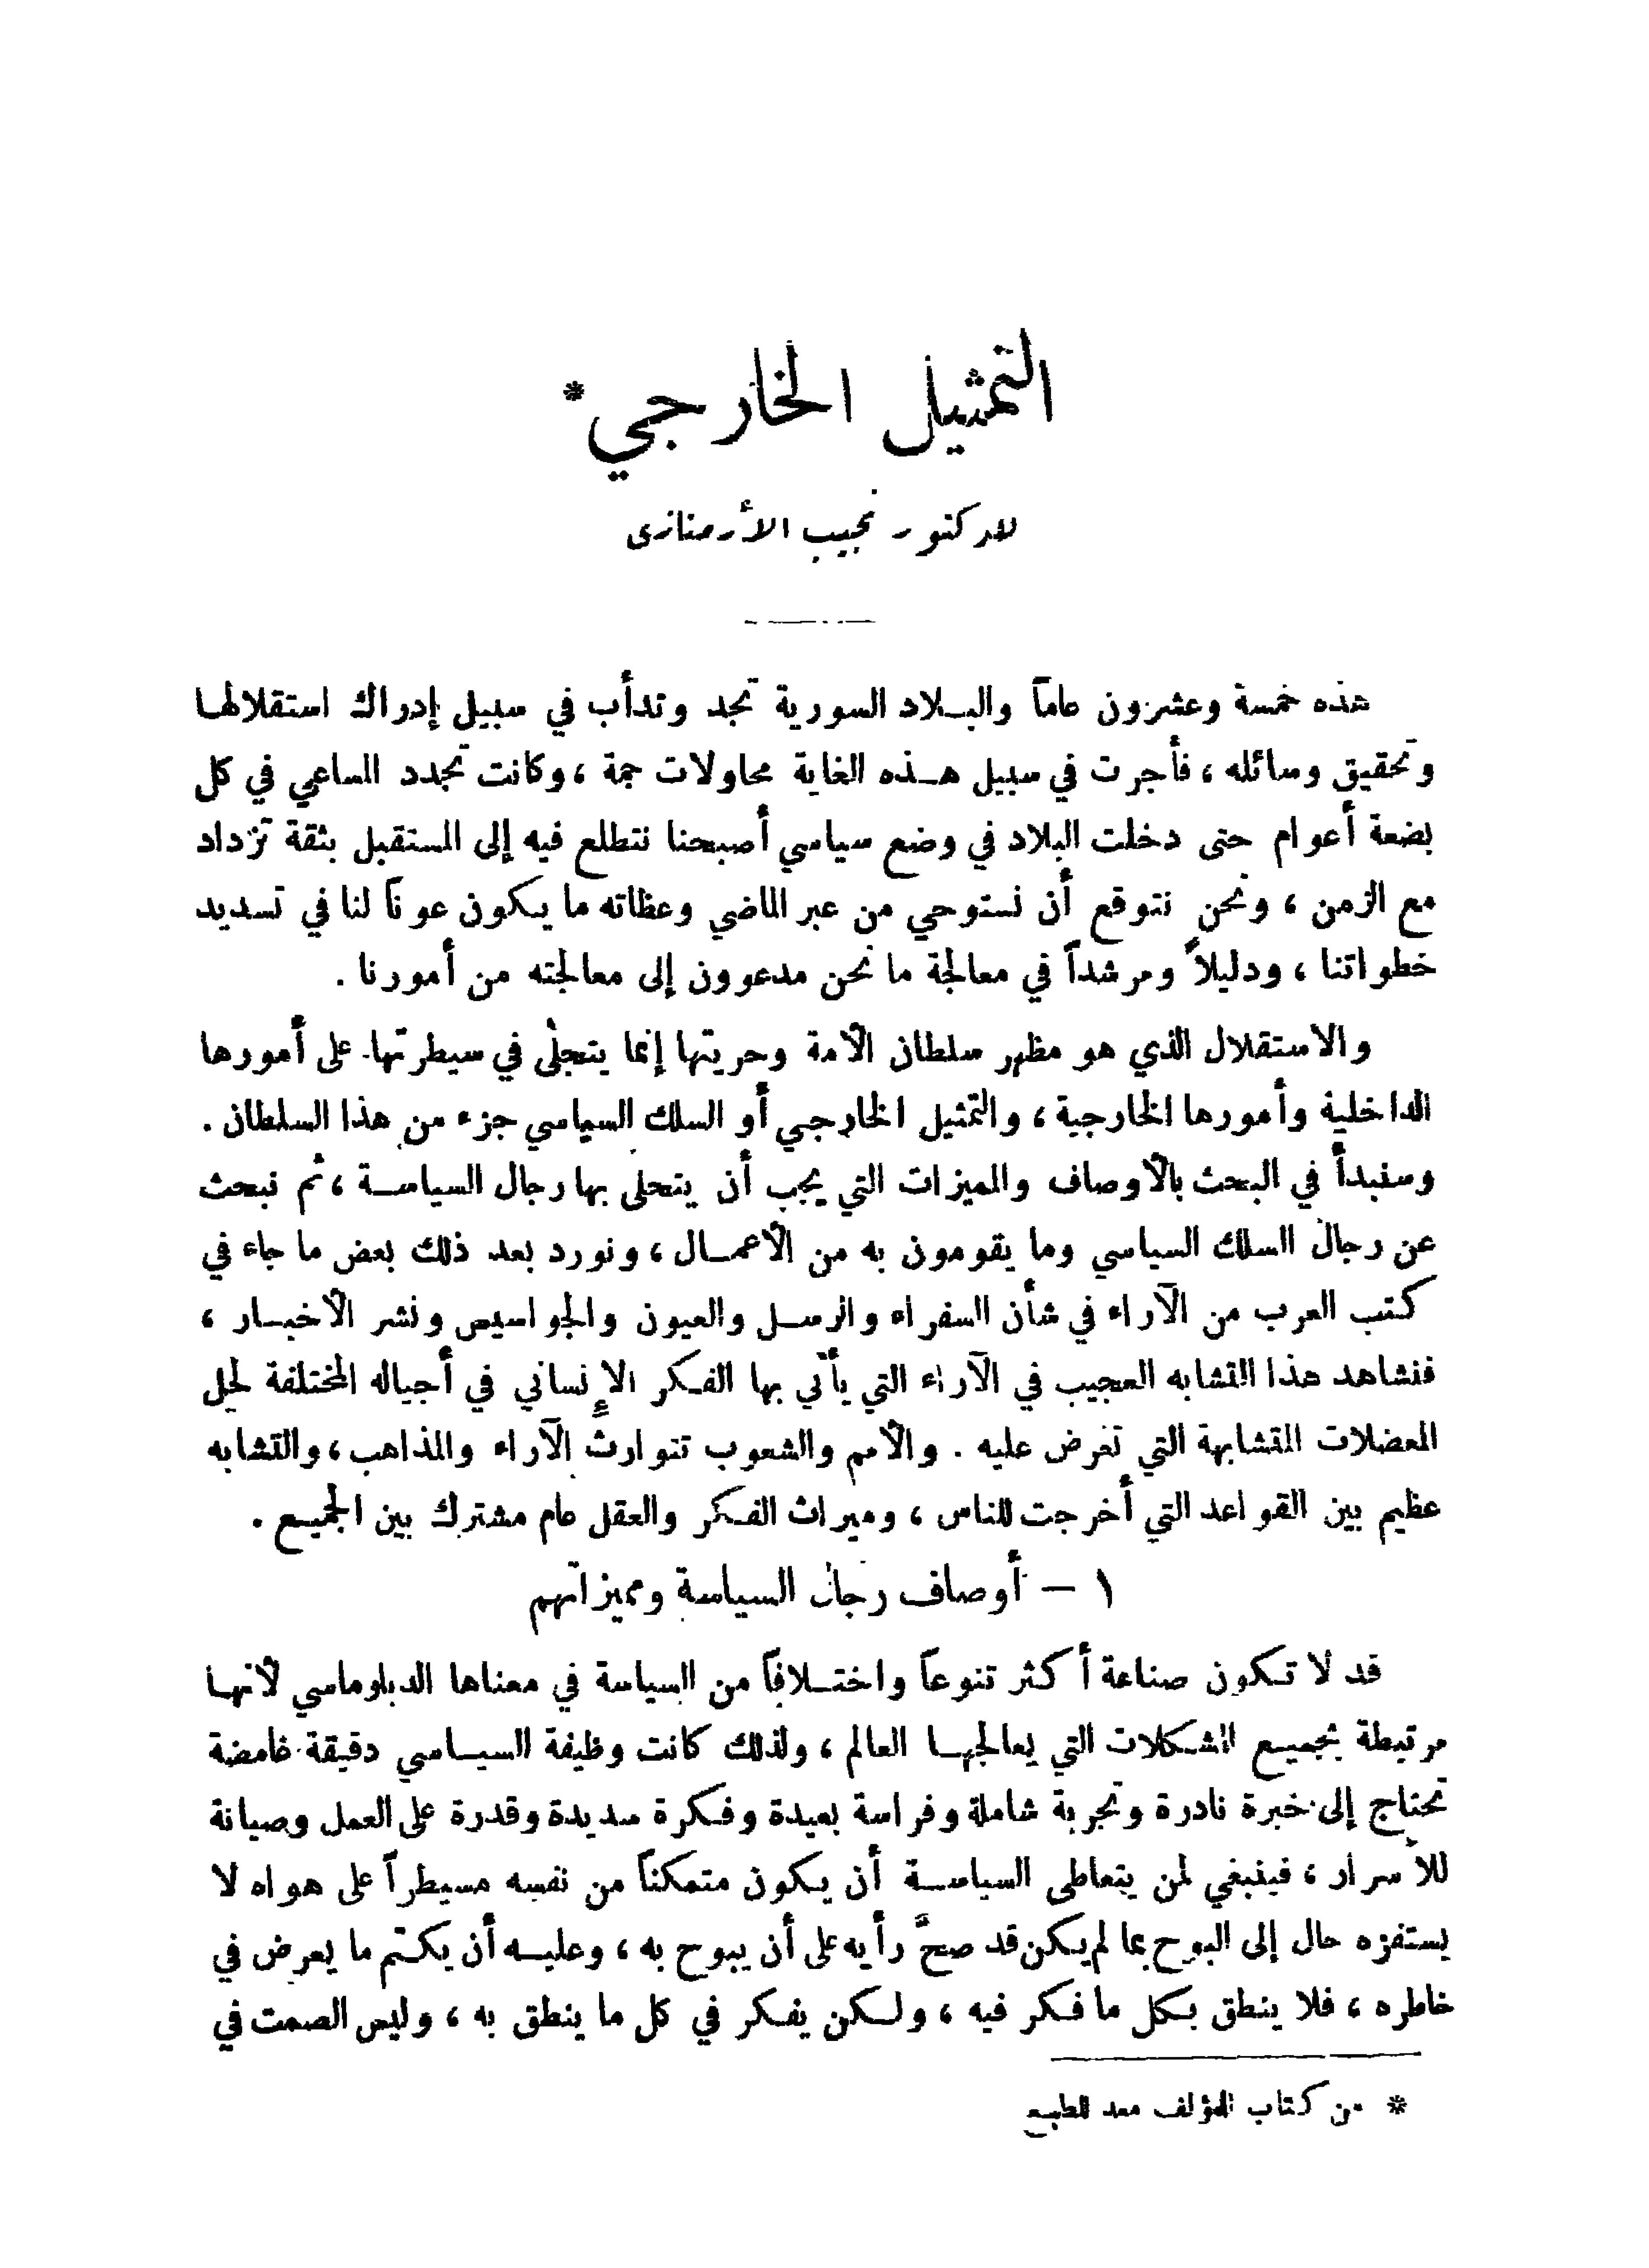 التمثيل الخارجي *
للدكتور نجيب الأرمنازي
هذه خمسة وعشرون عاماً والبلاد السورية تجد وتدأب في سبيل إدراك استقلالها
وتحقيق وسائله ، فأجرت في سبيل هذه الغاية محاولات جمة ، وكانت تجدد المساعي في كل
بضعة أعوام حتى دخلت البلاد في وضع سياسي أصبحنا نتطلع فيه إلى المستقبل بثقة تزداد
مع الزمن ، ونحن نتوقع أن نستوحي من عبر الماضي وعظاته ما يكون عوناً لنا في تسديد
خطواتنا ، ودليلاً ومرشداً في معالجة ما نحن مدعوون إلى معالجته من أمورنا .
والاستقلال الذي هو مظهر سلطان الأمة وحريتها إنما يتجلى في سيطرتها على أمورها
الداخلية وأمورها الخارجية ، والتمثيل الخارجي أو السلك السياسي جزء من هذا السلطان .
وسنبدأ في البحث بالأوصاف والمميزات التي يجب أن يتحلى بها رجال السياسة ، ثم نبحث
عن رجال السلك السياسي وما يقومون به من الأعمال ، ونورد بعد ذلك بعض ما جاء في
كتب العرب من الآراء في شأن السفراء والرسل والعيون والجواسيس ونشر الأخبار ،
فنشاهد هذا التشابه العجيب في الآراء التي يأتي بها الفكر الإنساني في أجياله المختلفة لحل
المعضلات المتشابهة التي تعرض عليه . والأمم والشعوب تتوارث الآراء والمذاهب ، والتشابه
عظيم بين القواعد التي أخرجت للناس ، وميراث الفكر والعقل عام مشترك بين الجميع .
١ — أوصاف رجال السياسة ومميزاتهم
قد لا تكون صناعة أكثر تنوعاً واختلافاً من السياسة في معناها الدبلوماسي لأنها
مرتبطة بجميع المشكلات التي يعالجها العالم ، ولذلك كانت وظيفة السياسي دقيقة غامضة
تحتاج إلى خبرة نادرة وتجربة شاملة وفراسة بعيدة وفكرة سديدة وقدرة على العمل وصيانة
للأسرار ، فينبغي لمن يتعاطى السياسة أن يكون متمكناً من نفسه مسيطراً على هواه لا
يستفزه حال إلى البوح بما لم يكن قد صحَّ رأيه على أن يبوح به ، وعليه أن يكتم ما يعرض في
خاطره ، فلا ينطق بكل ما فكر فيه ، ولكن يفكر في كل ما ينطق به ، وليس الصمت في
* من كتاب للمؤلف معد للطبع